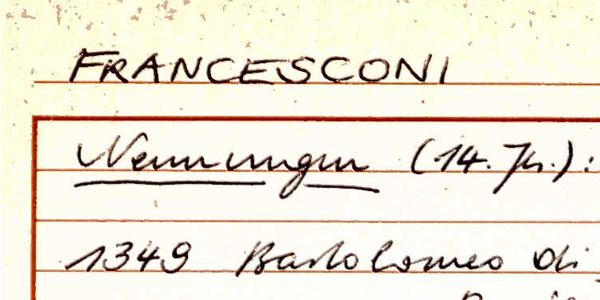 FRANCESCONI
Nennungen (14. Jh.):
1349 Bartolomeo di